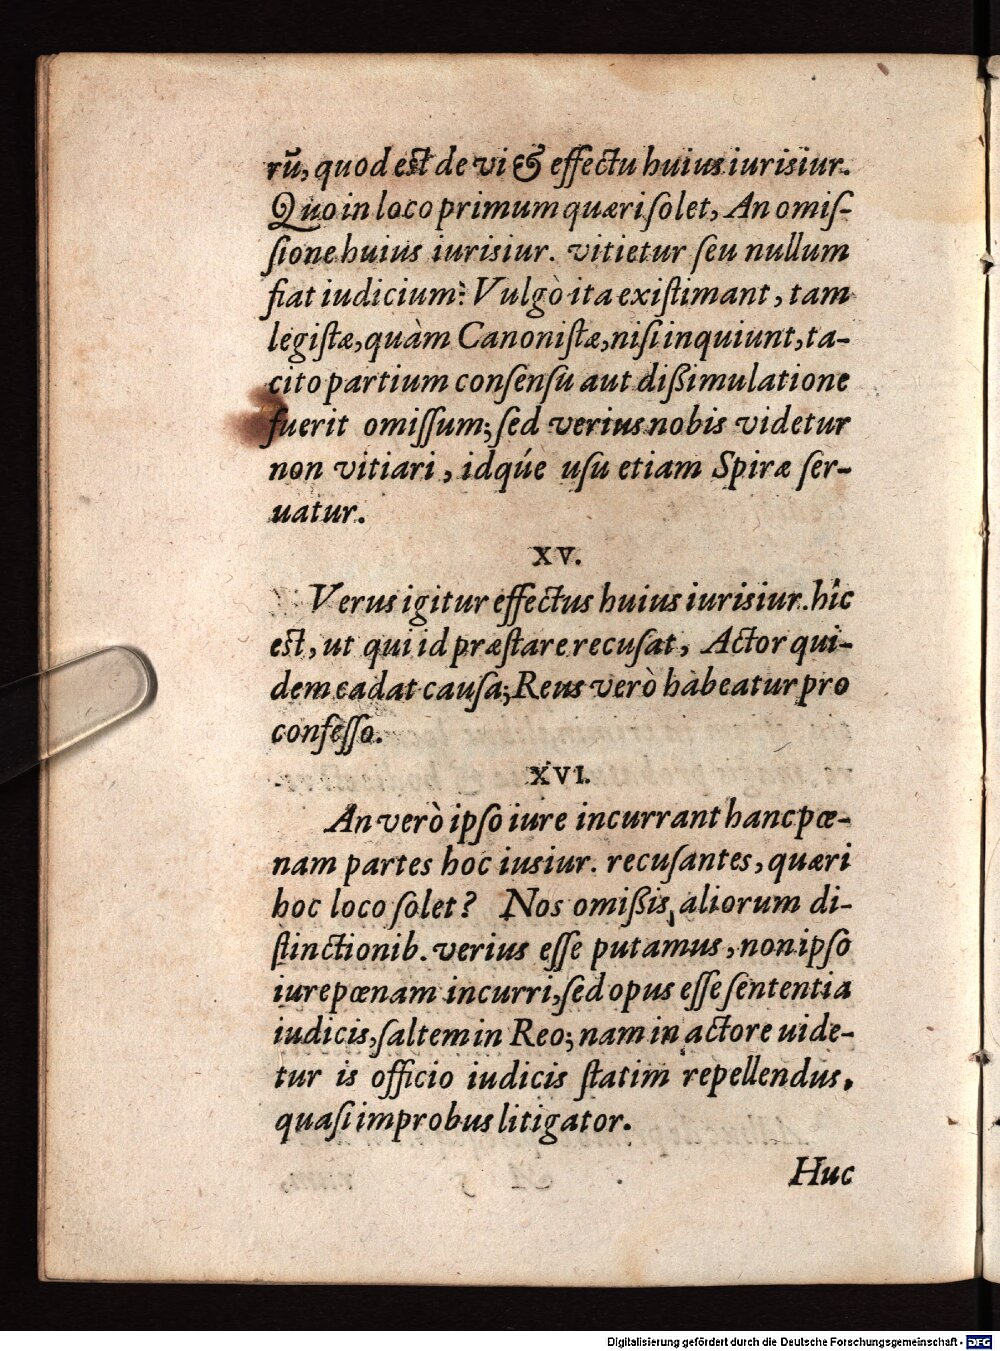 rū, quod est de vi & effectu huius iurisiur.
Quo in loco primum quæri solet, An omis-
sione huius iurisiur. vitietur seu nullum
fiat iudicium? Vulgò ita existimant, tam
legistæ, quàm Canonistæ, nisi inquiunt, ta-
cito partium consensu aut dißimulatione
fuerit omissum; sed verius nobis videtur
non vitiari, idqúe usu etiam Spiræ ser-
uatur.
XV.
Verus igitur effectus huius iurisiur. hîc
est, ut qui id præstare recusat, Actor qui-
dem cadat causa; Reus verò habeatur pro
confesso.
XVI.
An verò ipso iure incurrant hanc pœ-
nam partes hoc iusiur. recusantes, quæri
hoc loco solet? Nos omißis aliorum di-
stinctionib. verius esse putamus, non ipso
iure pœnam incurri, sed opus esse sententia
iudicis, saltem in Reo; nam in actore uide-
tur is officio iudicis statim repellendus,
quasi improbus litigator.
Huc
Digitalisierung gefördert durch die Deutsche Forschungsgemeinschaft - DFG